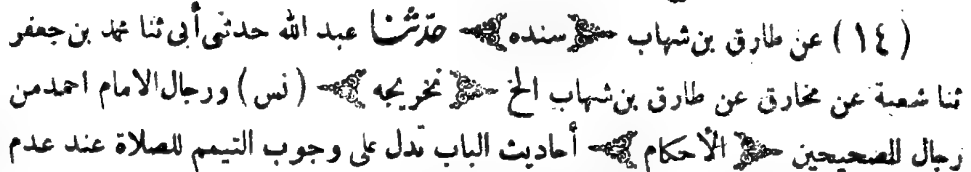 (١٤) عن طارق بن شهاب ﴿سنده﴾ حدّثنا عبد الله حدثنى أبى ثنا محمد بن جعفر
ثنا شعبة عن مخارق عن طارق بن شهاب الخ ﴿تخريجه﴾ (نس) ورجال الامام احمد من
رجال للصحيحين ﴿الأحكام﴾ أحاديث الباب تدل على وجوب التيمم للصلاة عند عدم